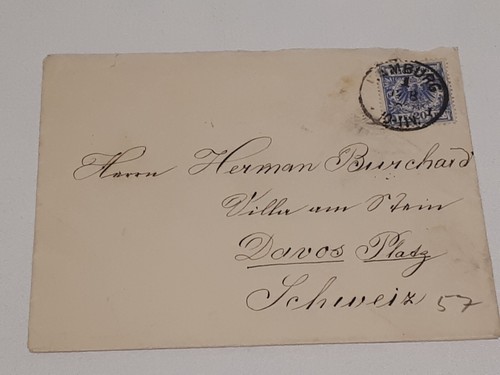 HAMBURG
1
Herrn Herman Burchard
Villa am Stein
Davos Platz
Schweiz
57